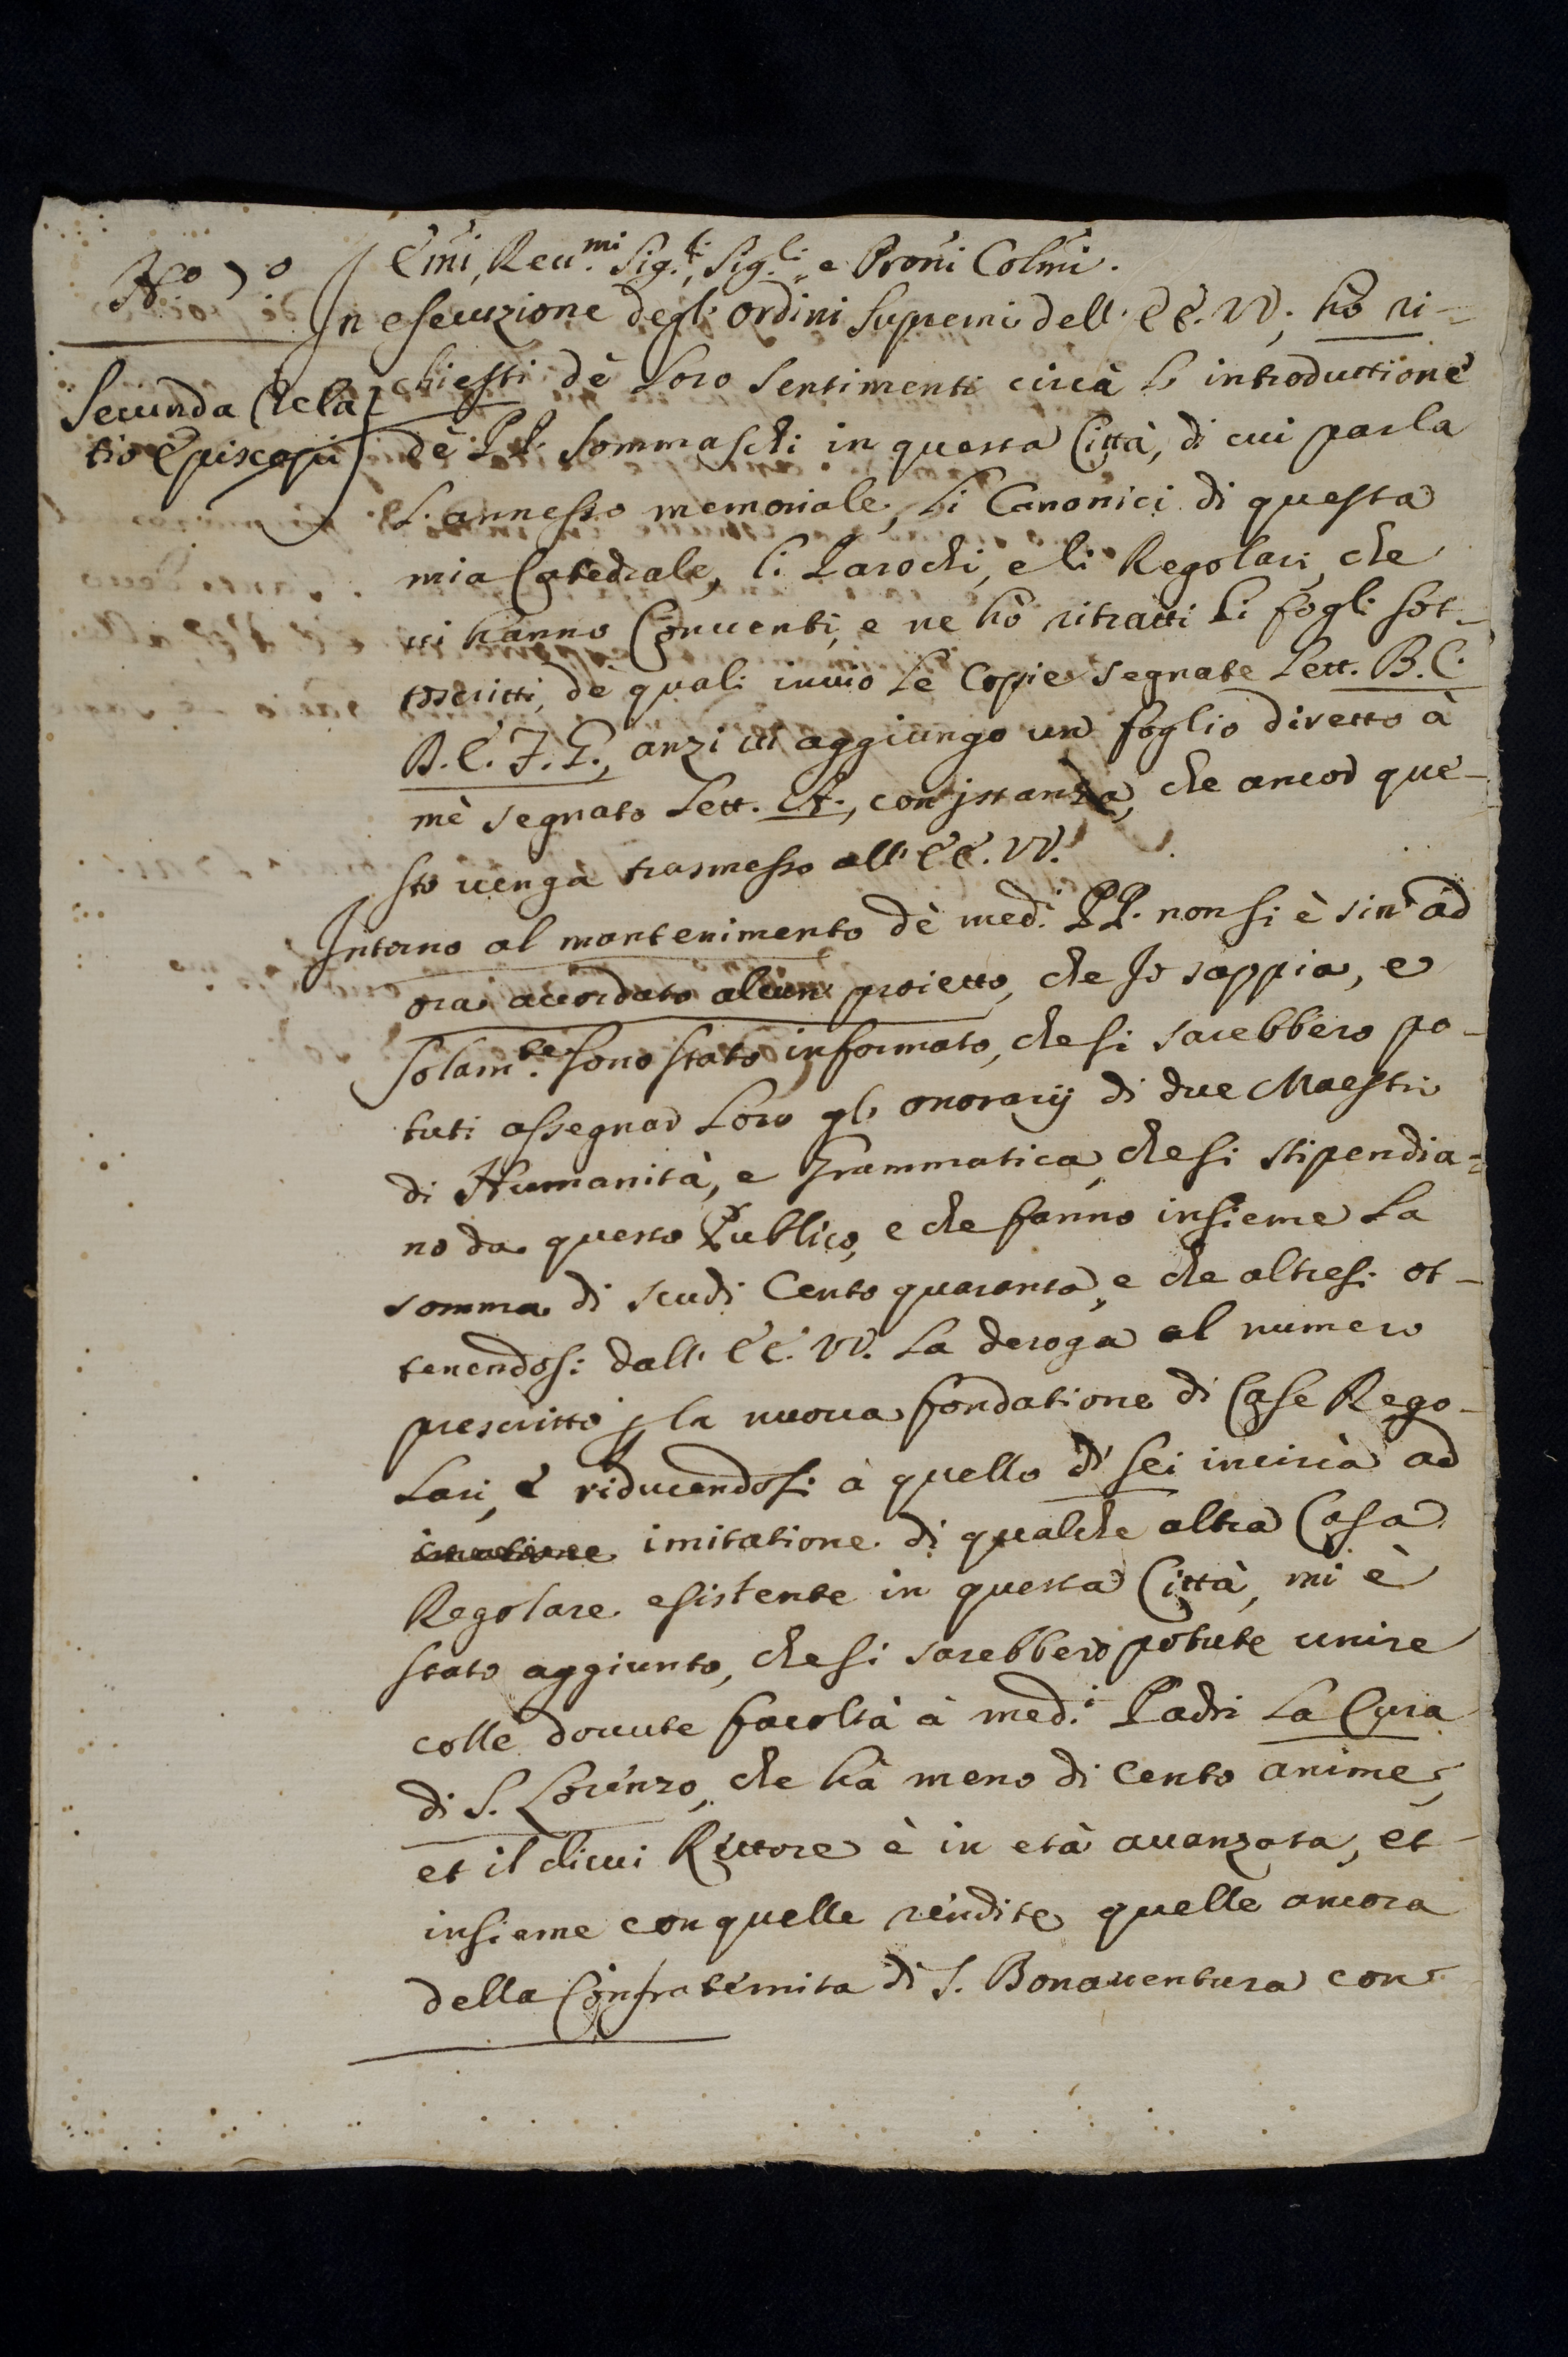 Emi, Reu.mi Sig.ri, Sig.li, e Proñi Colmi.
In esecuzione degl' ordini supremi dell' EE. VV. hò ri-
Secunda Rela-
tio Episcopi
chiesti dè Loro sentimenti circà L' introduttione
dè PP. Sommaschi in questa Città, di cui parla
L' annesso memoriale, Li Canonici di questa
mia Catedrale, li Parochi, e li Regolari, che
ui hanno Conuenti, e ne hò ritratti Li fogli sot-
toscritti, de quali inuio Le Copie segnate Lett. B. C.
D. E. F. G., anzi ui aggiungo un foglio diretto à
mè segnato Lett. A., con istanza, che ancor que-
sto uenga trasmesso all' EE. VV.
Intorno al mantenimento dè med.i PP. non si è sin' ad
ora accordato alcun proietto, che Io sappia, e
solam.te sono stato informato, che si sarebbero po-
tuti assegnar Loro gl' onorarij di due Maestri
di Humanità, e Grammatica, che si stipendia-
no da questo Publico, e che fanno insieme La
somma di scudi Cento quaranta, e che altresi ot-
tenendosi dall' EE. VV. La deroga al numero
prescritto p la nuoua fondatione di Case Rego-
Lari, e riducendosi à quello di sei incircà ad
imitatione di qualche altra Casa
Regolare esistente in questa Città, mi è
stato aggiunto, che si sarebbero potute unire
colle douute facoltà à med.i Padri La Cura
di S. Lorenzo, che hà meno di Cento anime,
et il dicui Rettore è in età auanzata, et
insieme con quelle rendite quelle ancora
della Confraternita di S. Bonauentura con-